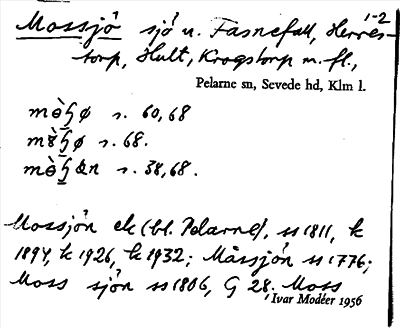 Mossjö sjö u. Fasnefall, Herres-
1-2
torp, Hult, Krogstorp m. fl.,
Pelarne sn, Sevede hd, Klm l.
s. 60, 68
s. 68.
s. 38, 68.
Mossjön ek (bl. Pelarne), ss 1811, k
1894, k 1926, k 1932; Måssjön ss 1776;
Moss sjön ss 1806, G 28. Moss
Ivar Modéer 1956